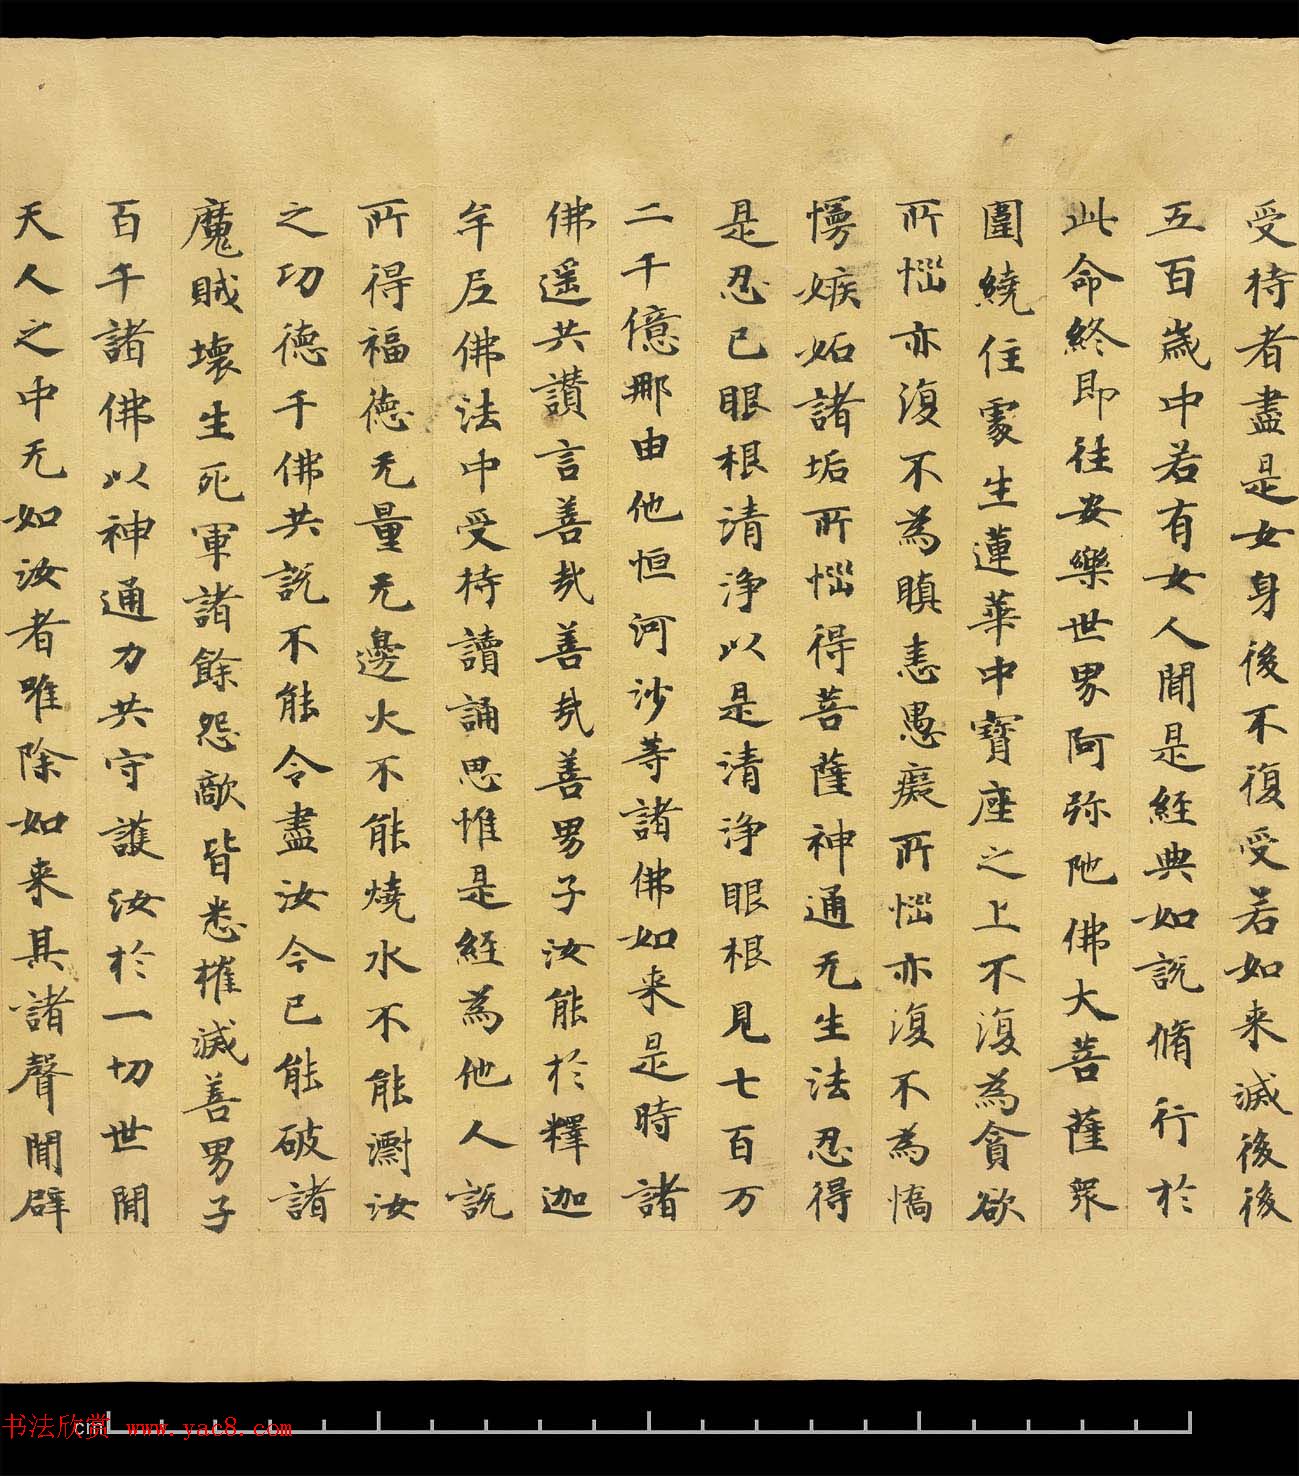 受持者盡是女身後不復受若如来滅後後
五百歲中若有女人聞是經典如說脩行於
此命終即往安樂世界阿弥陁佛大菩薩眾
圍繞住處生蓮華中寳座之上不復為貪欲
所惱亦復不為瞋恚愚癡所惱亦復不為憍
慢嫉妬諸垢所惱得菩薩神通无生法忍得
是忍已眼根清淨以是清淨眼根見七百万
二千億那由他恒河沙等諸佛如来是時諸
佛遥共讃言善哉善哉善男子汝能於釋迦
牟尼佛法中受持讀誦思惟是經為他人說
所得福德无量无邊火不能燒水不能漂汝
之功德千佛共說不能令盡汝今已能破諸
魔賊壞生死軍諸餘怨敵皆悉摧滅善男子
百千諸佛以神通力共守護汝於一切世間
天人之中无如汝者唯除如来其諸聲聞辟
书法欣赏 www.yac8.com
cm